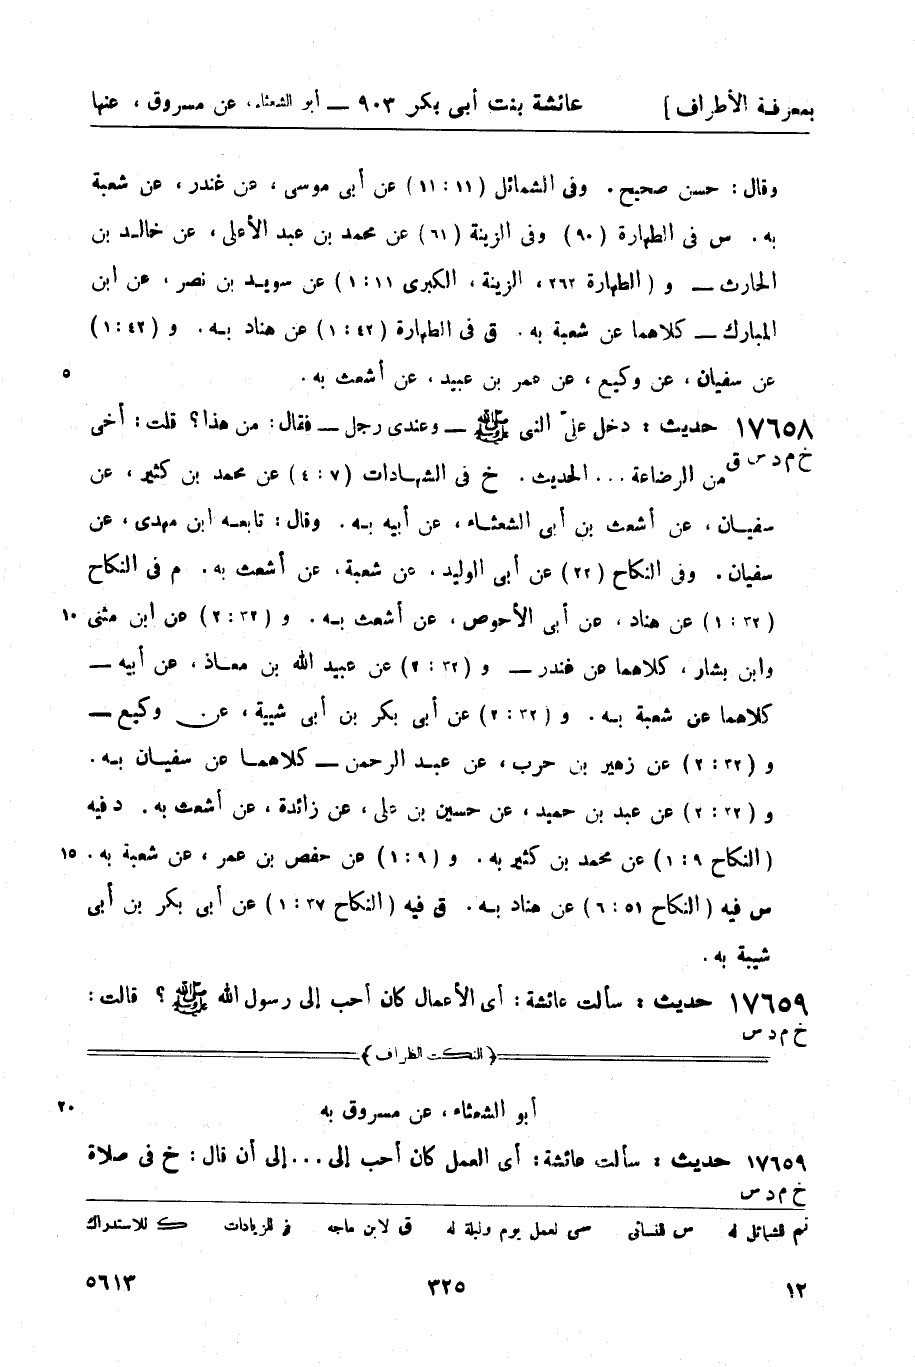 بمعرفة الأطراف ] عائشة بنت أبى بكر ٩٠٣ — أبو الشعثاء، عن مسروق ، عنها
وقال : حسن صحيح . وفى الشمائل ( ١١ : ١١ ) عن أبى موسى ، عن غندر ، عن شعبة
به . س فى الطهارة ( ٩٠ ) وفى الزينة ( ٦١ ) عن محمد بن عبد الأعلى ، عن خالد بن
الحارث — و ( الطهارة ٢٦٢ ، الزينة ، الكبرى ١١ : ١ ) عن سويد بن نصر ، عن ابن
المبارك — كلاهما عن شعبة به . ق فى الطهارة ( ٤٢ : ١ ) عن هناد به . و ( ٤٢ : ١ )
عن سفيان ، عن وكيع ، عن عمر بن عبيد ، عن أشعث به . ٥
١٧٦٥٨ حديث : دخل علىّ النبى ﷺ — وعندى رجل — فقال : من هذا ؟ قلت : أخى
خ م د س ق من الرضاعة ... الحديث . خ فى الشهادات ( ٧ : ٤ ) عن محمد بن كثير ، عن
سفيان ، عن أشعث بن أبى الشعثاء ، عن أبيه به . وقال : تابعه ابن مهدى ، عن
سفيان . وفى النكاح ( ٢٢ ) عن أبى الوليد ، عن شعبة ، عن أشعث به . م فى النكاح
( ٣٢ : ١ ) عن هناد ، عن أبى الأحوص ، عن أشعث به . و ( ٣٢ : ٢ ) عن ابن مثنى ١٠
وابن بشار ، كلاهما عن غندر — و ( ٣٢ : ٢ ) عن عبيد الله بن معاذ ، عن أبيه —
كلاهما عن شعبة به . و ( ٣٢ : ٢ ) عن أبى بكر بن أبى شيبة ، عن وكيع —
و ( ٣٢ : ٢ ) عن زهير بن حرب ، عن عبد الرحمن — كلاهما عن سفيان به .
و ( ٣٢ : ٢ ) عن عبد بن حميد ، عن حسين بن على ، عن زائدة ، عن أشعث به . د فيه
( النكاح ٩ : ١ ) عن محمد بن كثير به . و ( ٩ : ١ ) عن حفص بن عمر ، عن شعبة به . ١٥
س فيه ( النكاح ٥١ : ٦ ) عن هناد به . ق فيه ( النكاح ٣٧ : ١ ) عن أبى بكر بن أبى
شيبة به .
١٧٦٥٩ حديث : سألت عائشة : أى الأعمال كان أحب إلى رسول الله ﷺ ؟ قالت :
خ م د س
( النكت الظراف )
أبو الشعثاء ، عن مسروق به ٢٠
١٧٦٥٩ حديث : سألت عائشة : أى العمل كان أحب إلى ... إلى أن قال : خ فى صلاة
خ م د س
تم للشمائل له س للنسائى سى لعمل يوم وليلة له ق لابن ماجه ز للزيادات ك للاستدراك
١٢ ٣٢٥ ٥٦١٣